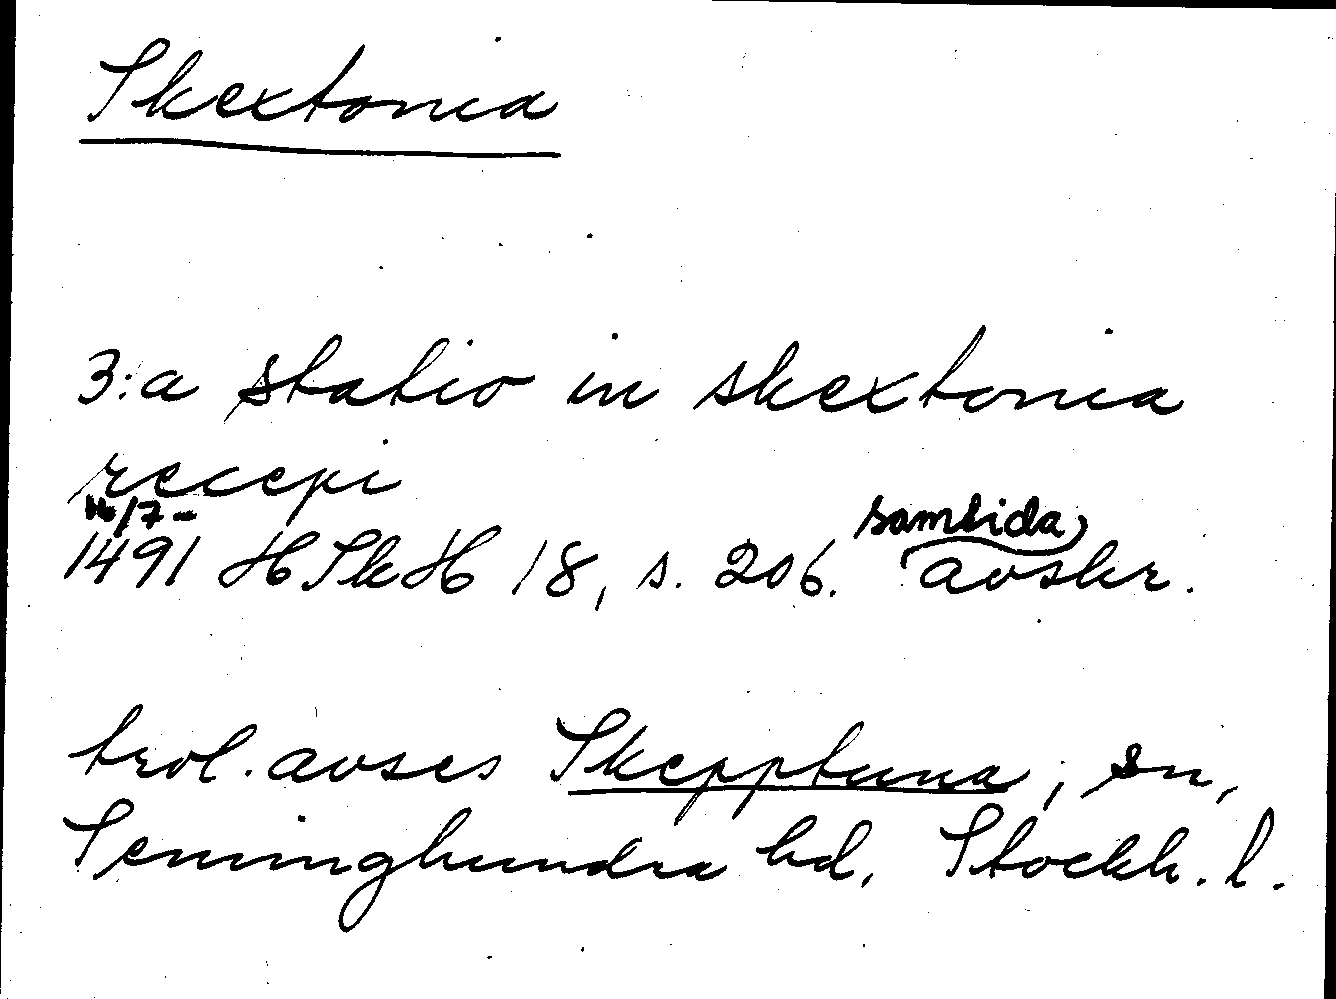 Skextonia
3:a statio in skextonia
recepi
16/7 -
1491 HSkH 18, s. 206. samtida avskr.
trol. avses Skepptuna, sn,
Seminghundra hd, Stockh. l.